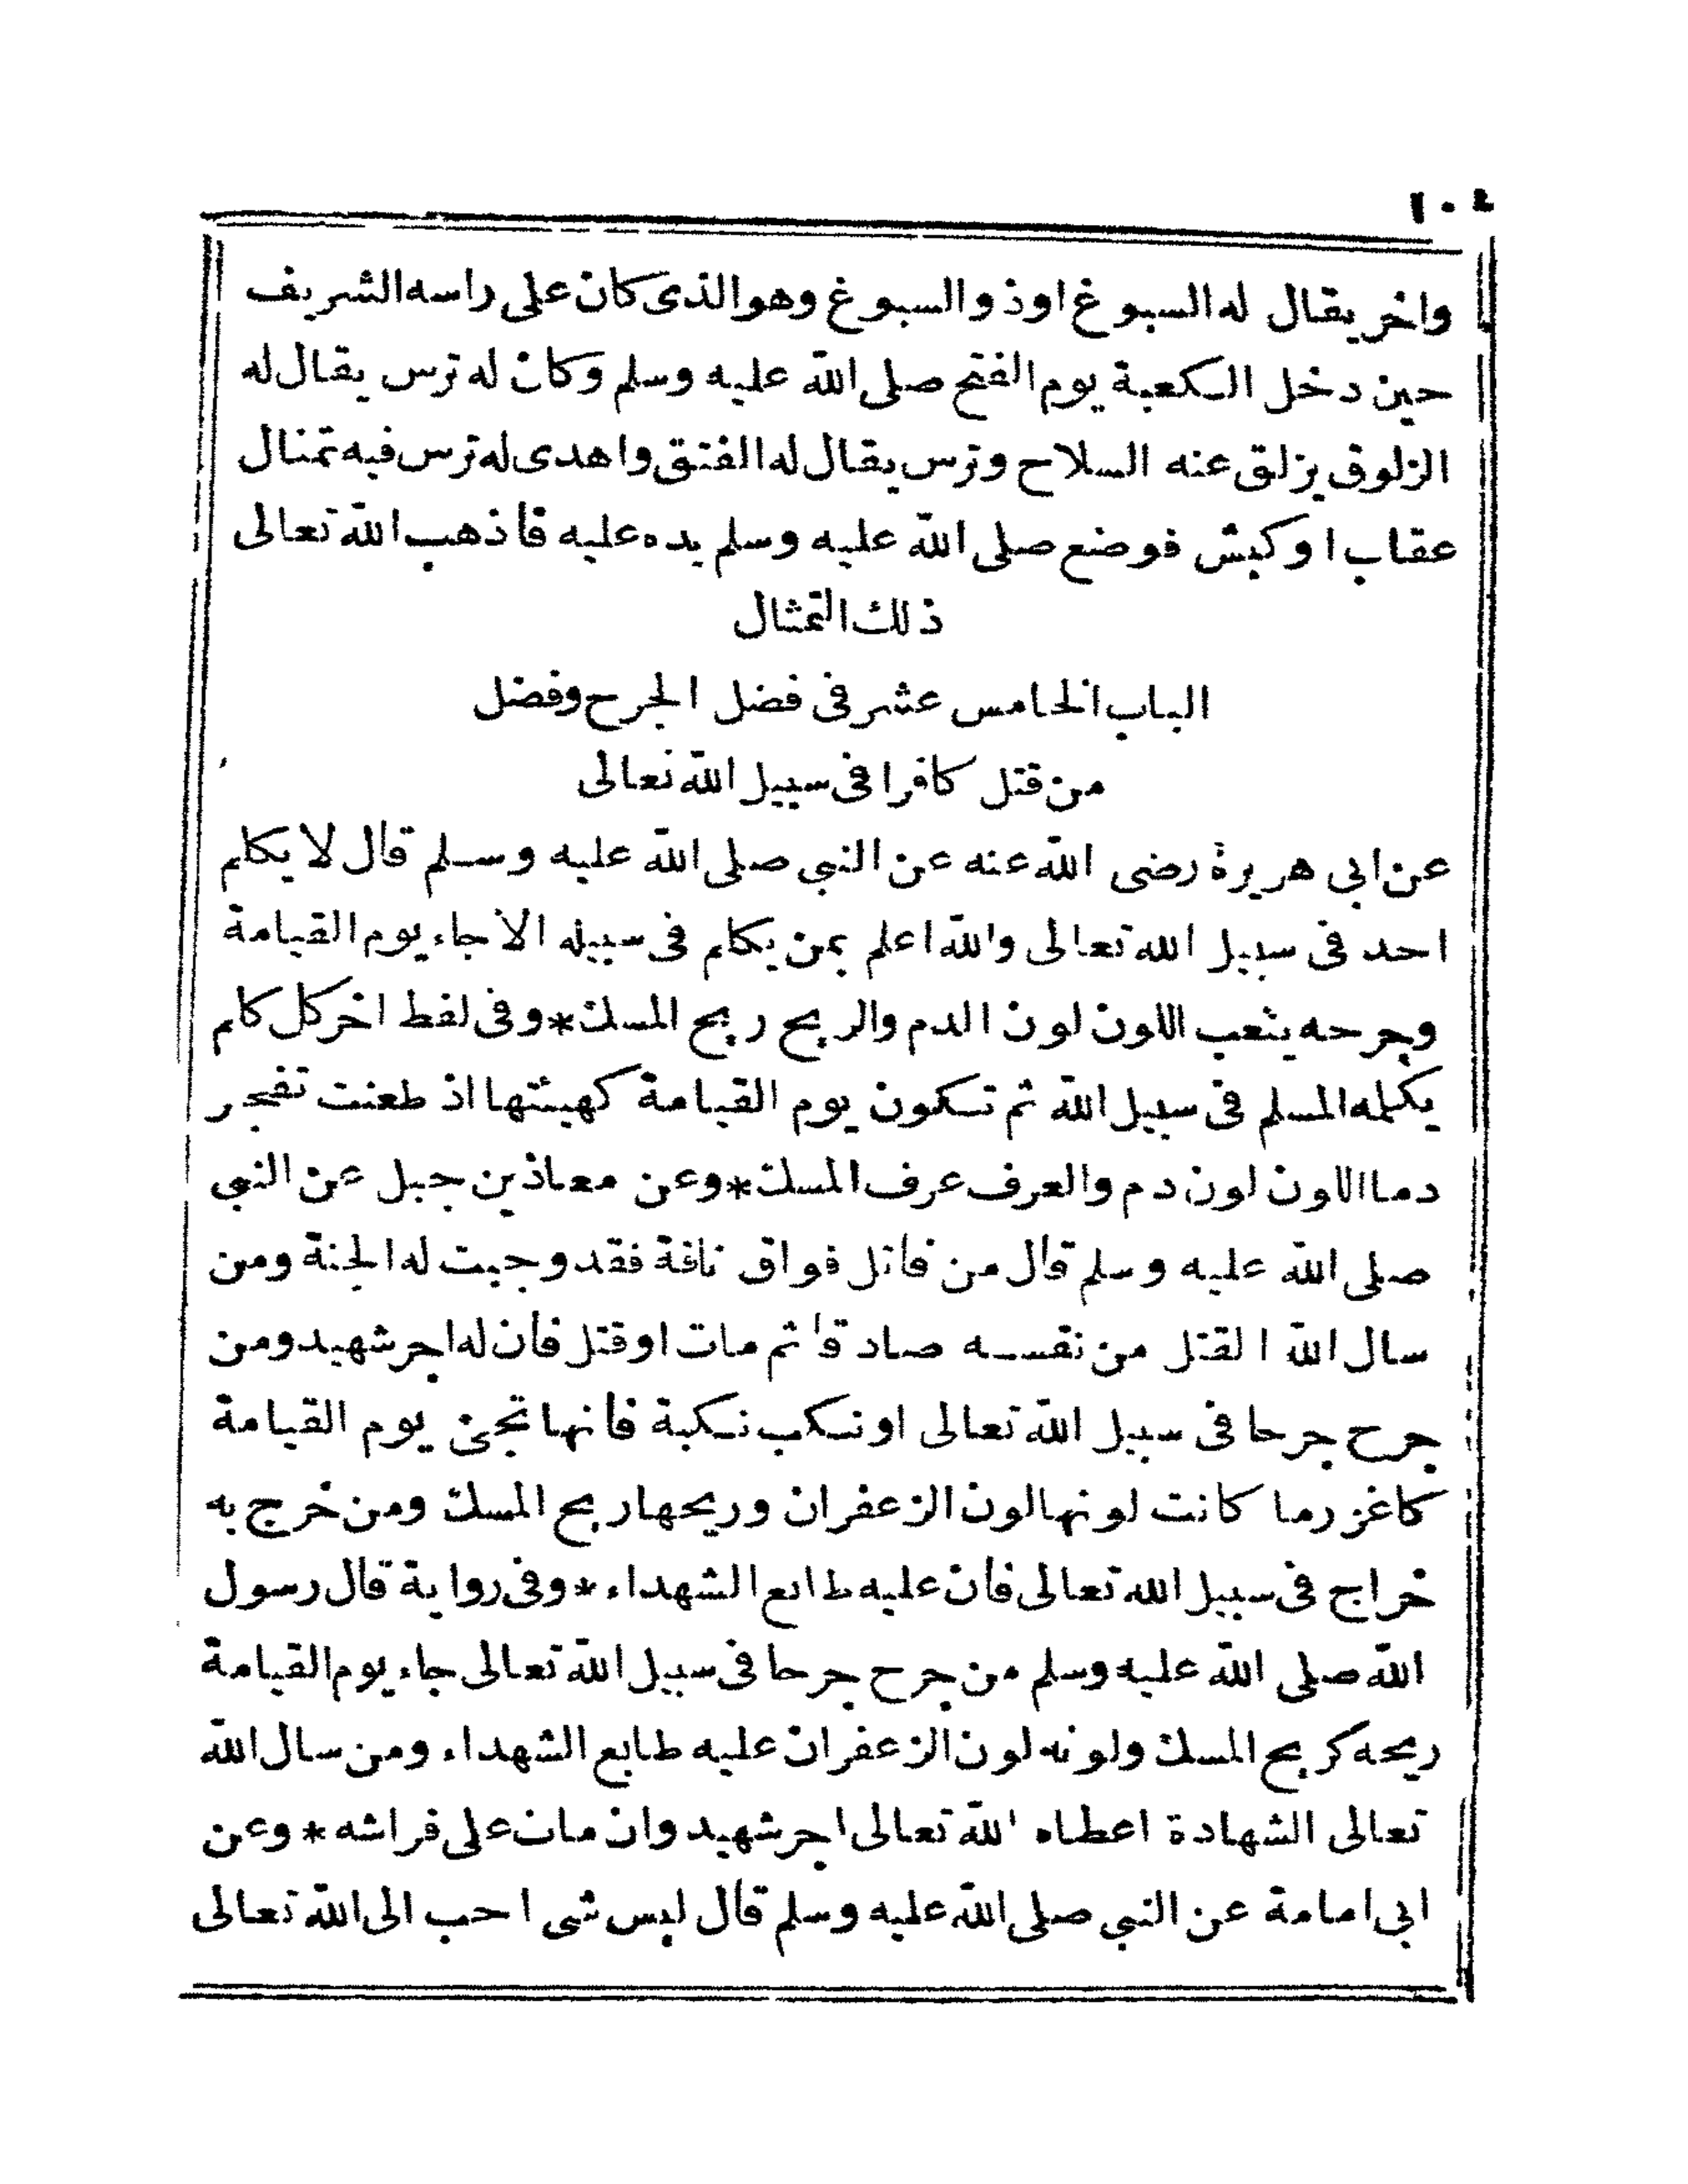 ١٠٤
واخر يقال له السبوغ اوذ والسبوغ وهو الذى كان على راسه الشريف
حين دخل الكعبة يوم الفتح صلى الله عليه وسلم وكان له ترس يقال له
الزلوق يزلق عنه السلاح وترس يقال له الفتق واهدى له ترس فيه تمثال
عقاب او كبش فوضع صلى الله عليه وسلم يده عليه فأذهب الله تعالى
ذلك التمثال
الباب الخامس عشر فى فضل الجرح وفضل
من قتل كافرا فى سبيل الله تعالى
عن ابى هريرة رضى الله عنه عن النبي صلى الله عليه وسلم قال لا يكلم
احد فى سبيل الله تعالى والله اعلم بمن يكلم فى سبيله الا جاء يوم القيامة
وجرحه يثعب اللون لون الدم والريح ريح المسك*وفى لفظ اخر كل كلم
يكلمه المسلم فى سبيل الله ثم تكون يوم القيامة كهيئتها اذ طعنت تفجر
دما اللون لون دم والعرف عرف المسك*وعن معاذ بن جبل عن النبي
صلى الله عليه وسلم قال من قاتل فواق ناقة فقد وجبت له الجنة ومن
سال الله القتل من نفسه صادقا ثم مات او قتل فأن له اجر شهيد ومن
جرح جرحا فى سبيل الله تعالى او نكب نكبة فأنها تجئ يوم القيامة
كاغزر ما كانت لونها لون الزعفران وريحها ريح المسك ومن خرج به
خراج فى سبيل الله تعالى فأن عليه طابع الشهداء*وفى رواية قال رسول
الله صلى الله عليه وسلم من جرح جرحا فى سبيل الله تعالى جاء يوم القيامة
ريحه كريح المسك ولونه لون الزعفران عليه طابع الشهداء ومن سال الله
تعالى الشهادة اعطاه الله تعالى اجر شهيد وان مات على فراشه*وعن
ابي امامة عن النبي صلى الله عليه وسلم قال ليس شى احب الى الله تعالى